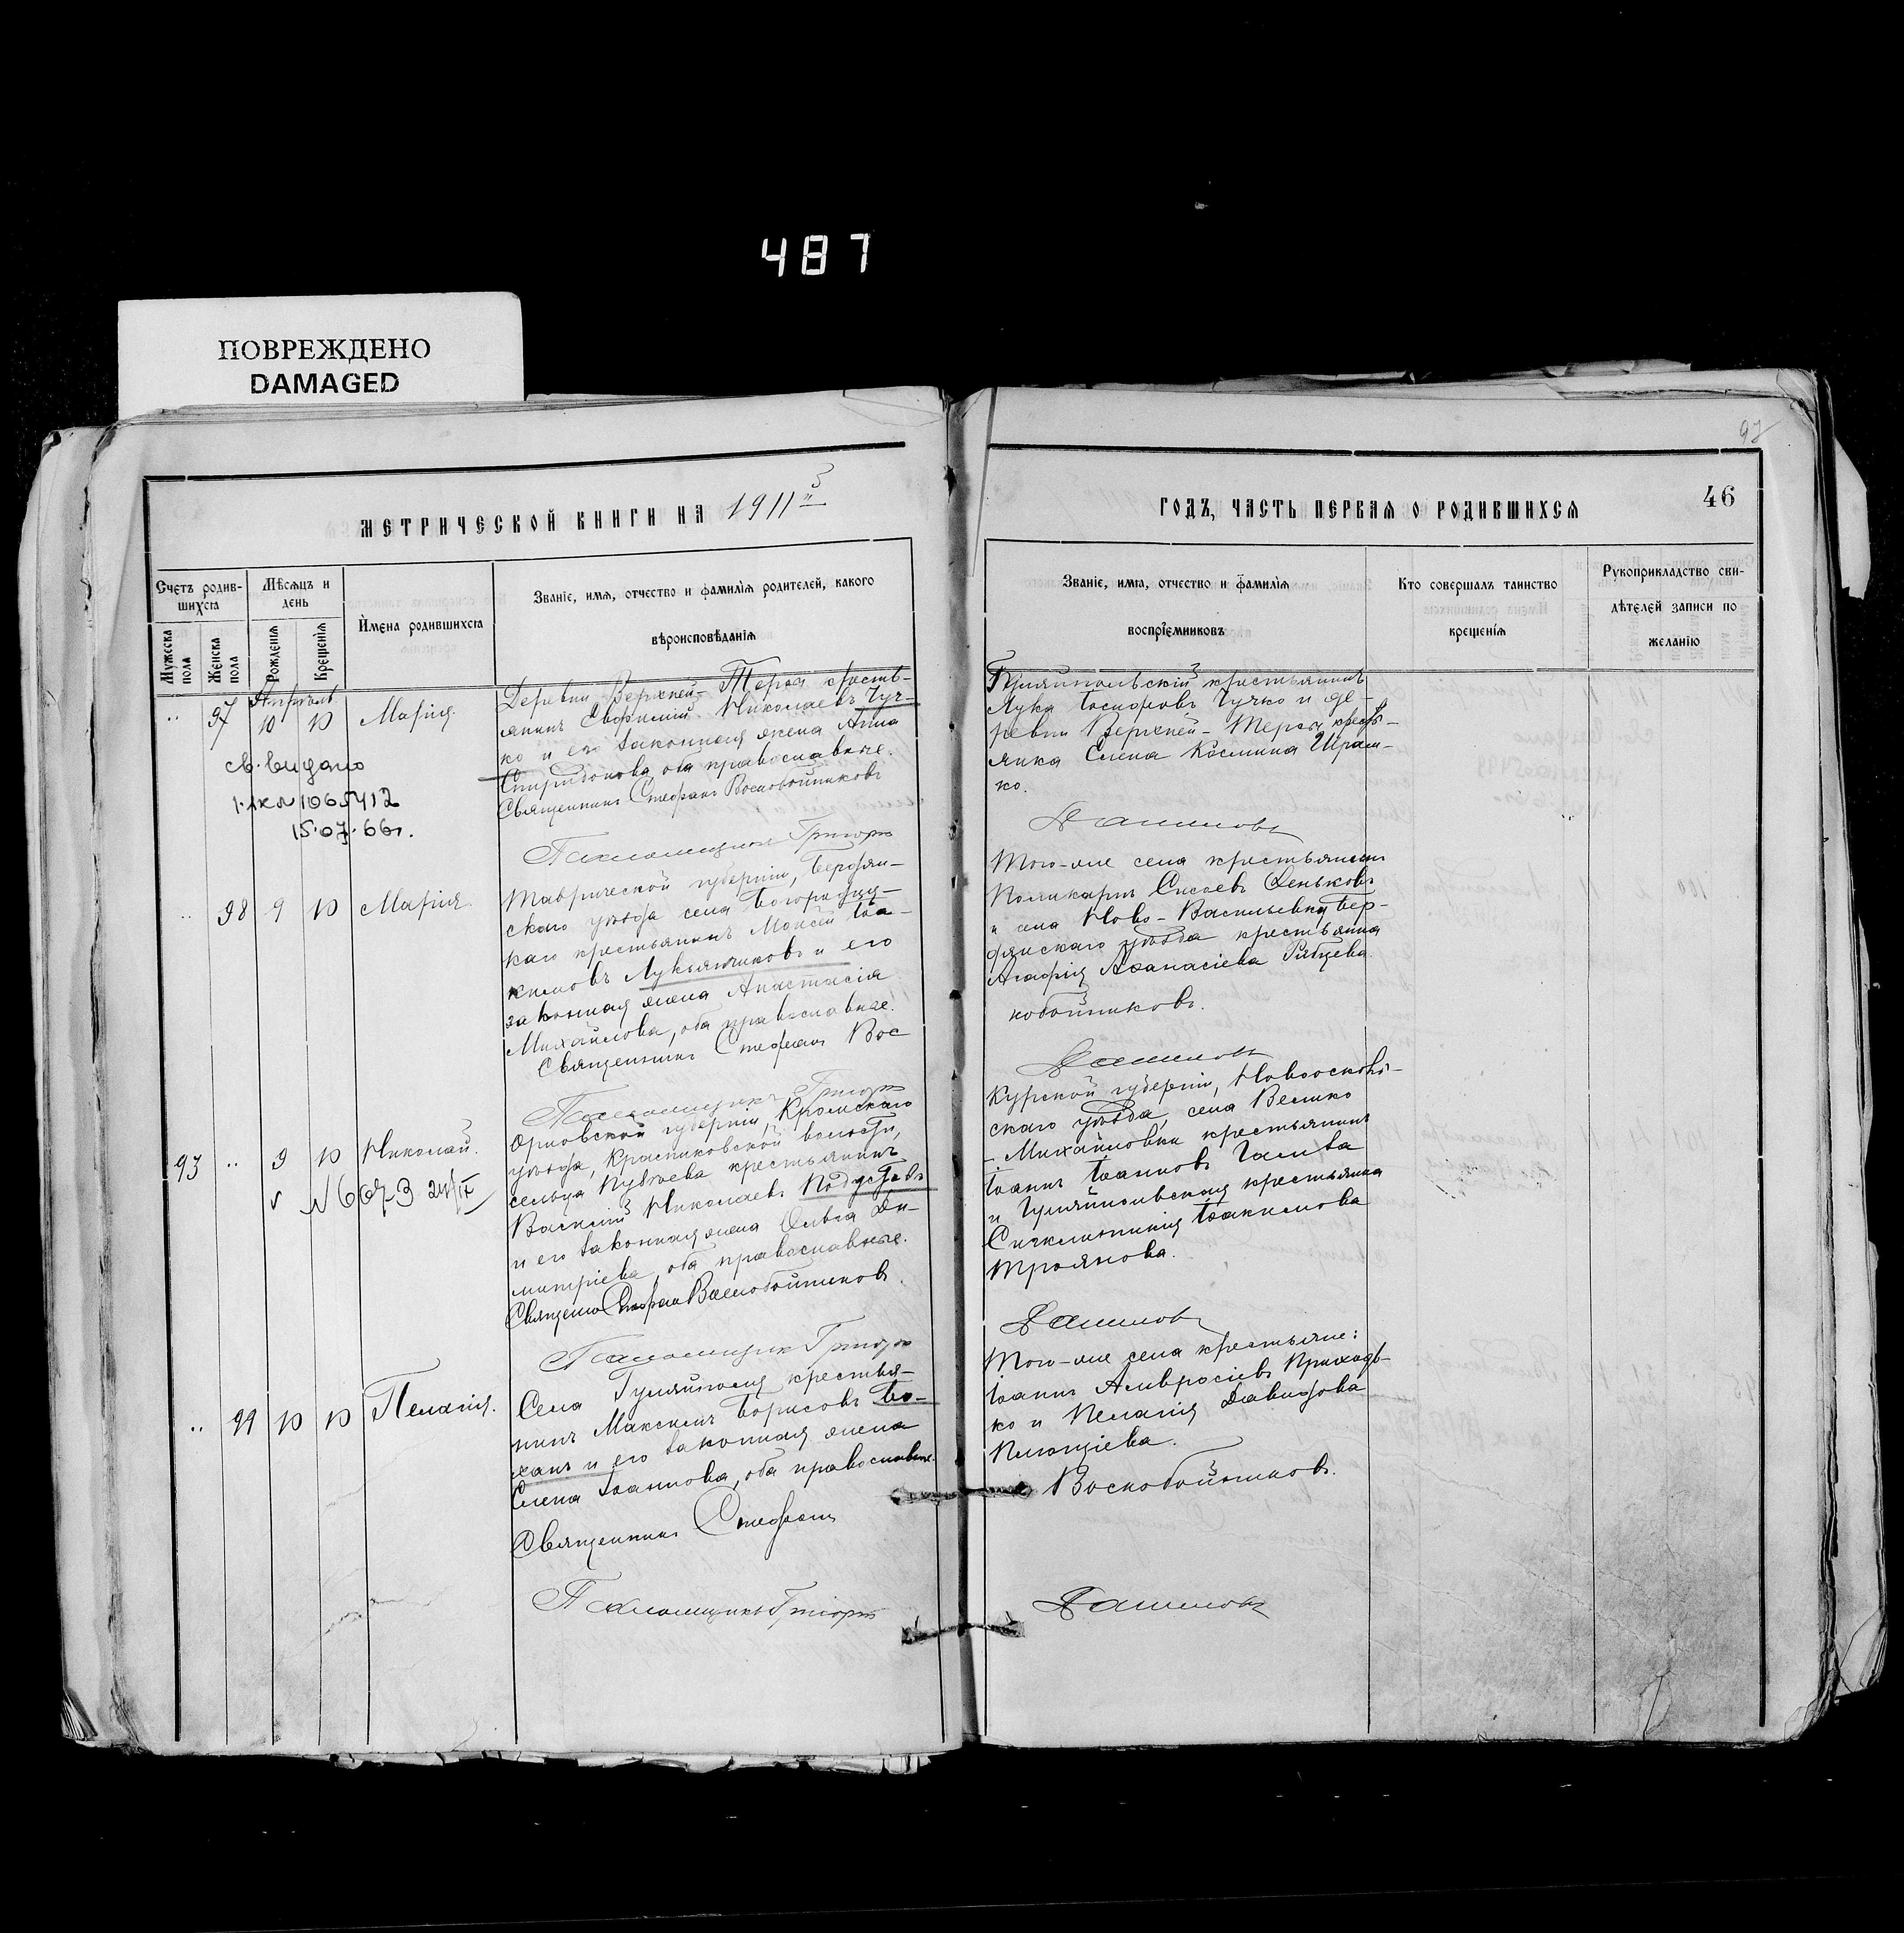 487
ПОВРЕЖДЕНО
DAMAGED
97
МЕТРИЧЕСКОЙ КНИГИ НА 1911й
ГОДЪ, ЧАСТЬ ПЕРВАЯ О РОДИВШИХСЯ
46
Счетъ родив-
шихся
Мужеска пола
Женска пола
Мѣсяцъ и
день
Рожденія
Крещенія
Имена родившихся
Званіе, имя, отчество и фамилія родителей, какого
вѣроисповѣданія
Званіе, имя, отчество и фамилія
воспріемниковъ
Кто совершалъ таинство
крещенія
Рукоприкладство сви-
дѣтелей записи по
желанію
Апрѣль
97 10 10 Марія
св. выдано
1065412
15.07.66г.
Деревни Верхней-Терсы кресть-
янинъ Николаевъ Чуч-
ко и его законная жена Анна
Спиридонова, оба православные.
Священникъ Стефанъ Воскобойниковъ
Псаломщикъ Григорій
Гуляйпольскій крестьянинъ
Лука Чучко и де-
ревни Верхней-Терсы кресть-
янка Елена Космина
ко.
Даниловъ
98 9 10 Марія
Таврической губерніи, Бердян-
скаго уѣзда села Богородиц-
каго крестьянинъ Моисей Іоа-
кимовъ Лукьянчиковъ и его
законная жена Анастасія
Михайлова, оба православные.
Священникъ Стефанъ Вос
Псаломщикъ Григорій
Того-же села крестьянинъ
Поликарпъ Сысоевъ Деньковъ
и села Ново-Васильевки Бер-
дянскаго уѣзда крестьянка
Агафія Аѳанасіева Рябцева.
кобойниковъ.
Даниловъ
93 9 10 Николай.
№ 667-З 24/IX
Орловской губерніи, Кромскаго
уѣзда, волости,
сельца крестьянинъ
Василій Николаевъ Подуставъ
и его законная жена Ольга Ди-
митріева, оба православные.
Стефанъ Воскобойниковъ.
Псаломщикъ Григорій
Курской губерніи, Новооскольс-
скаго уѣзда, села Велико
-Михайловки крестьянинъ
Іоаннъ Іоанновъ
и Гуляйпольская крестьянка
Синклитикія Іоакимова
Троянова.
Даниловъ
99 10 10 Пелагія.
Села Гуляйполя крестья-
нинъ Максимъ Борисовъ Бо-
ханъ и его законная жена
Елена Іоаннова, оба православные.
Священникъ Стефанъ
Псаломщикъ Григорій
Того-же села крестьяне:
Іоаннъ Амвросіевъ Приходь-
ко и Пелагія Давидова
Воскобойниковъ.
Даниловъ